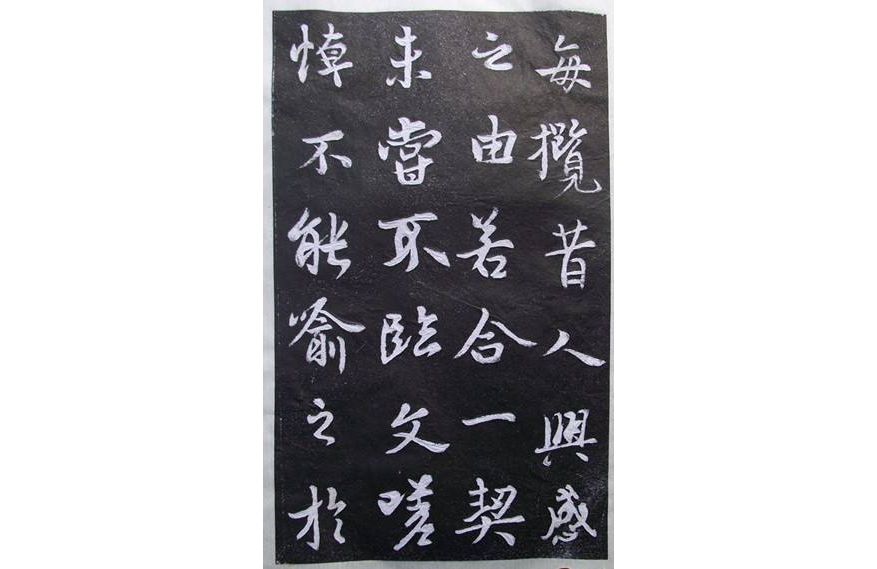 每攬昔人興感
之由若合一契
未嘗不臨文嗟
悼不能喻之於